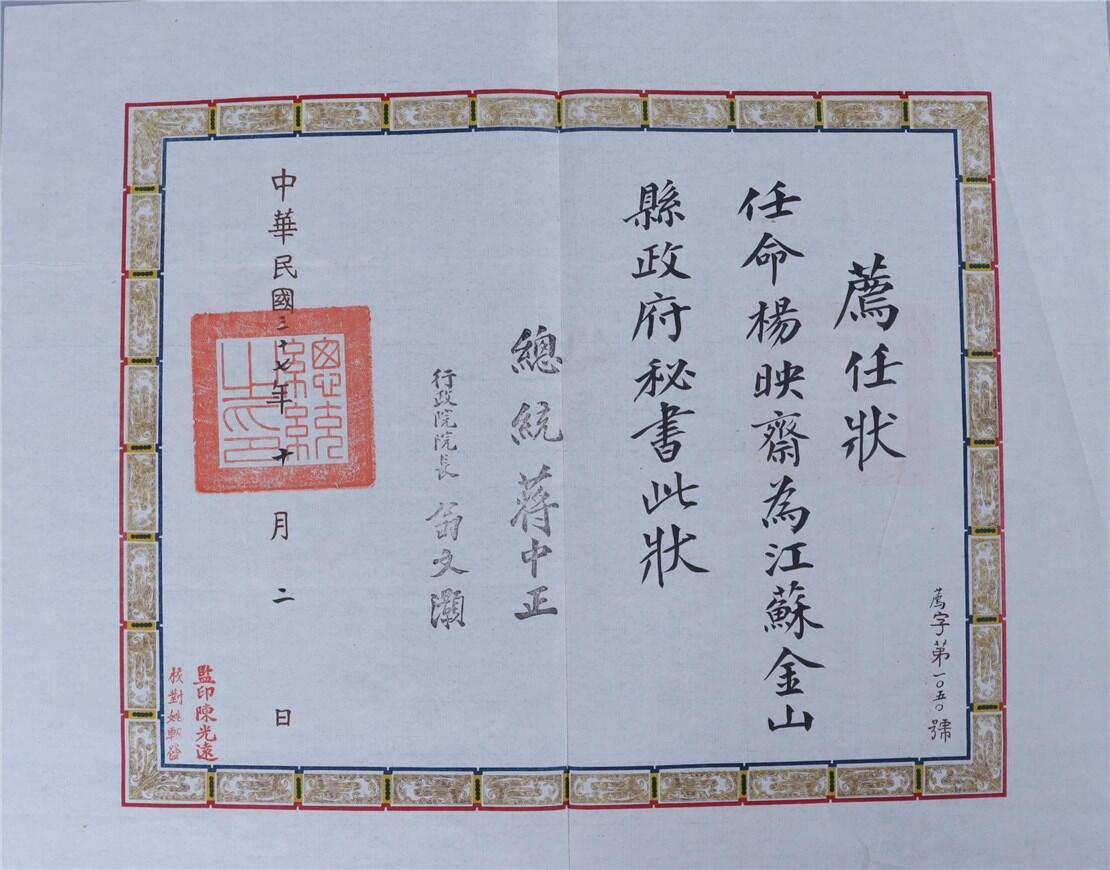 薦字第一〇五〇號
薦任狀
任命楊映齋為江蘇金山
縣政府秘書此狀
總統蔣中正
行政院院長翁文灝
中華民國三十七年十月二日
總統
之印
監印陳光遠
校對姚